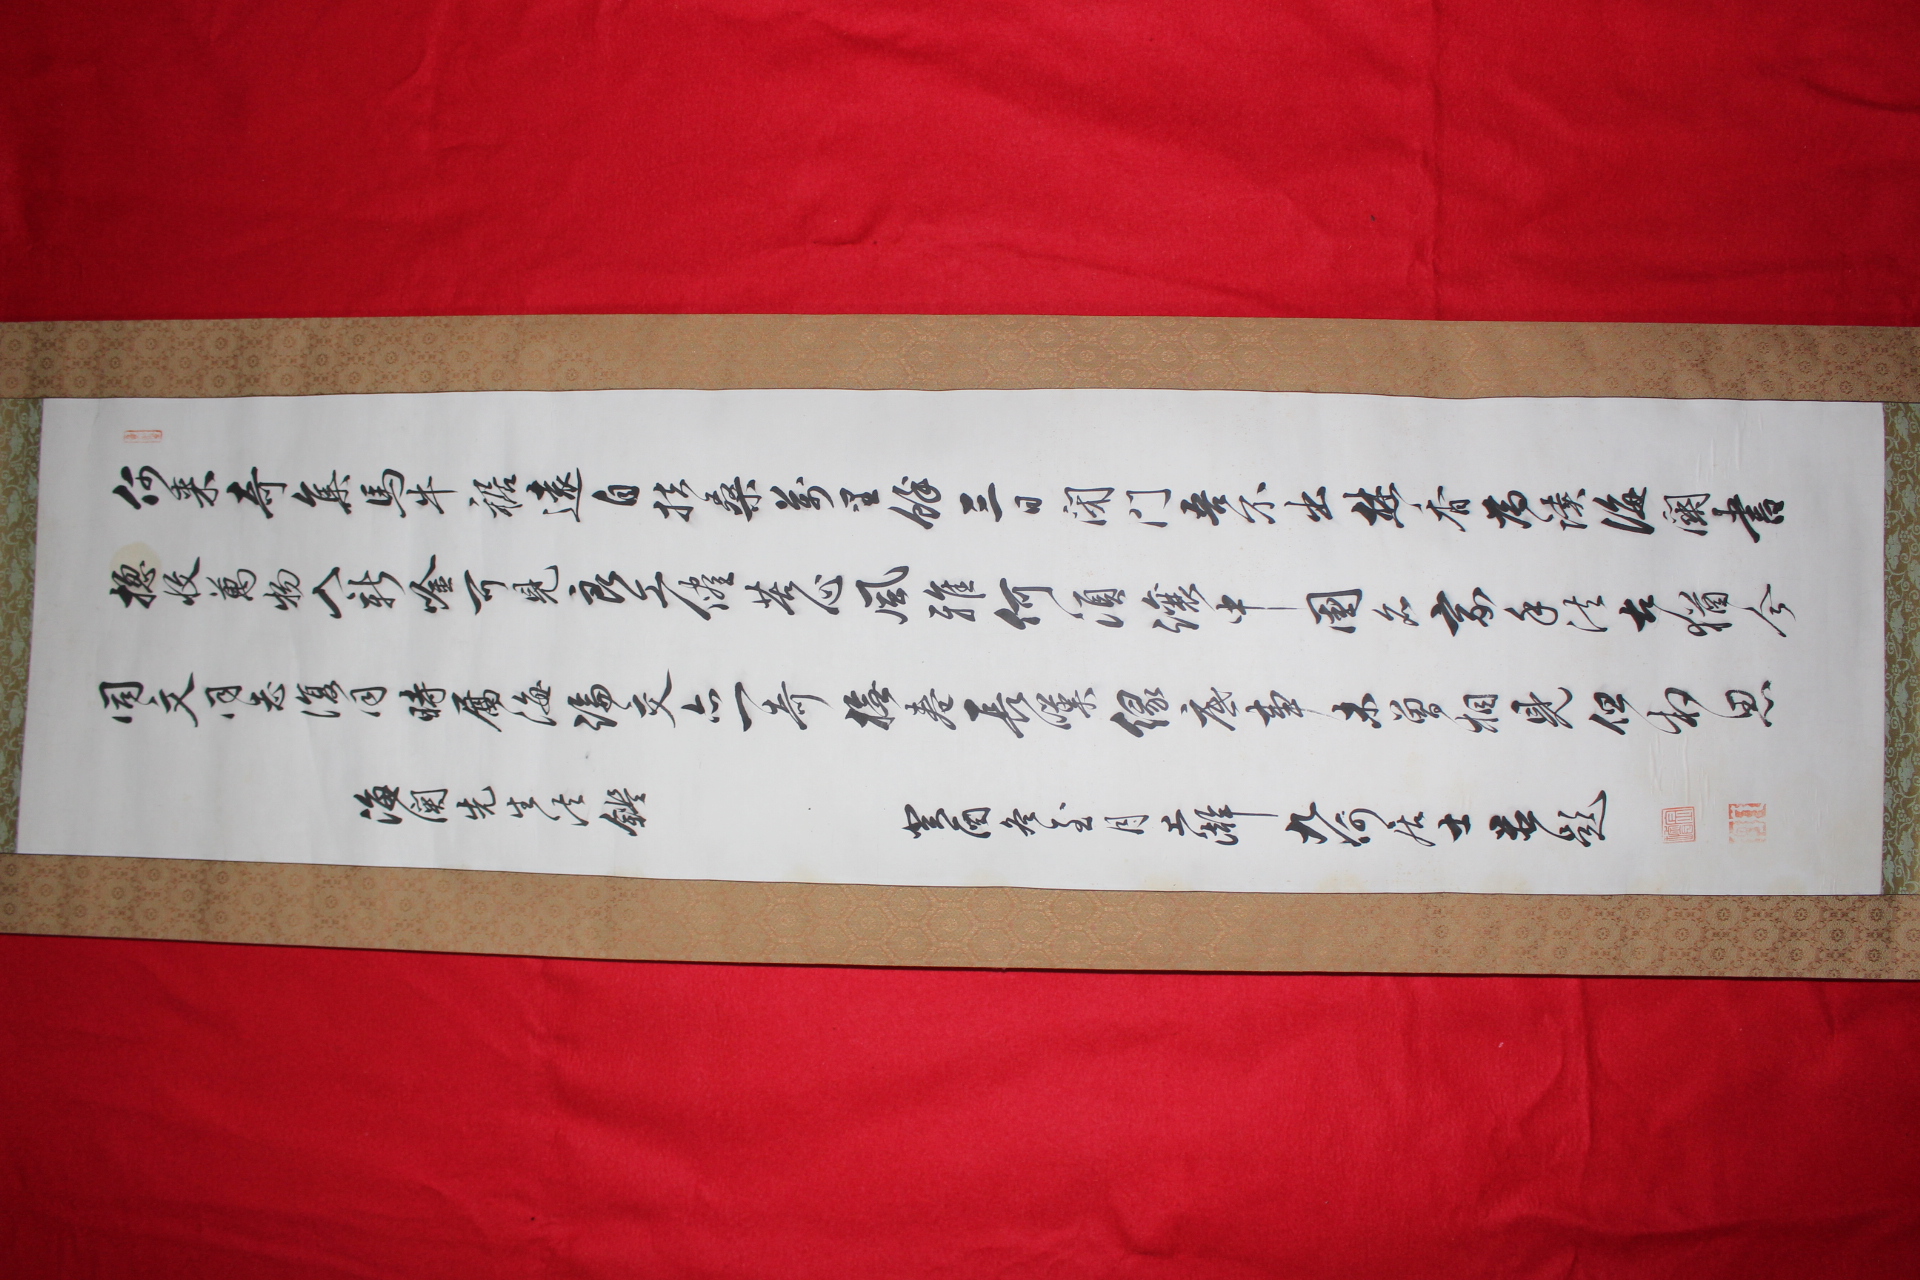 何来奇集馬牛裾遠自扶桑萬里餘三日閉門吾不出焚香為讀海關書
摠收萬物入新吟可見良工儘苦心風雅何須讓中國名家手法古猶今
同文同志復同時屬海論交亦一奇撫卷長嘆緣底事未曾相見但相思
海關先生法鑑
癸酉冬至月上澣九何居士並題